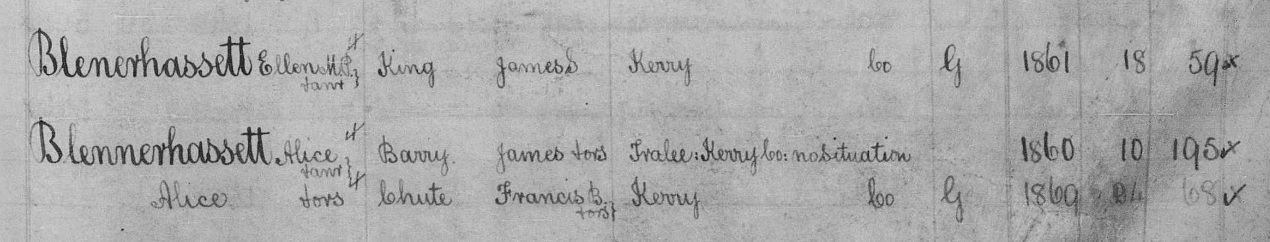 Blenerhassett Ellen M.P. & anr King James S Kerry Co G 1861 18 59
Blennerhassett Alice & anr Barry James & ors Tralee: Kerry Co: no situation 1860 10 195
Alice & ors Chute Francis B. & ors Kerry Co G 1869 24 68